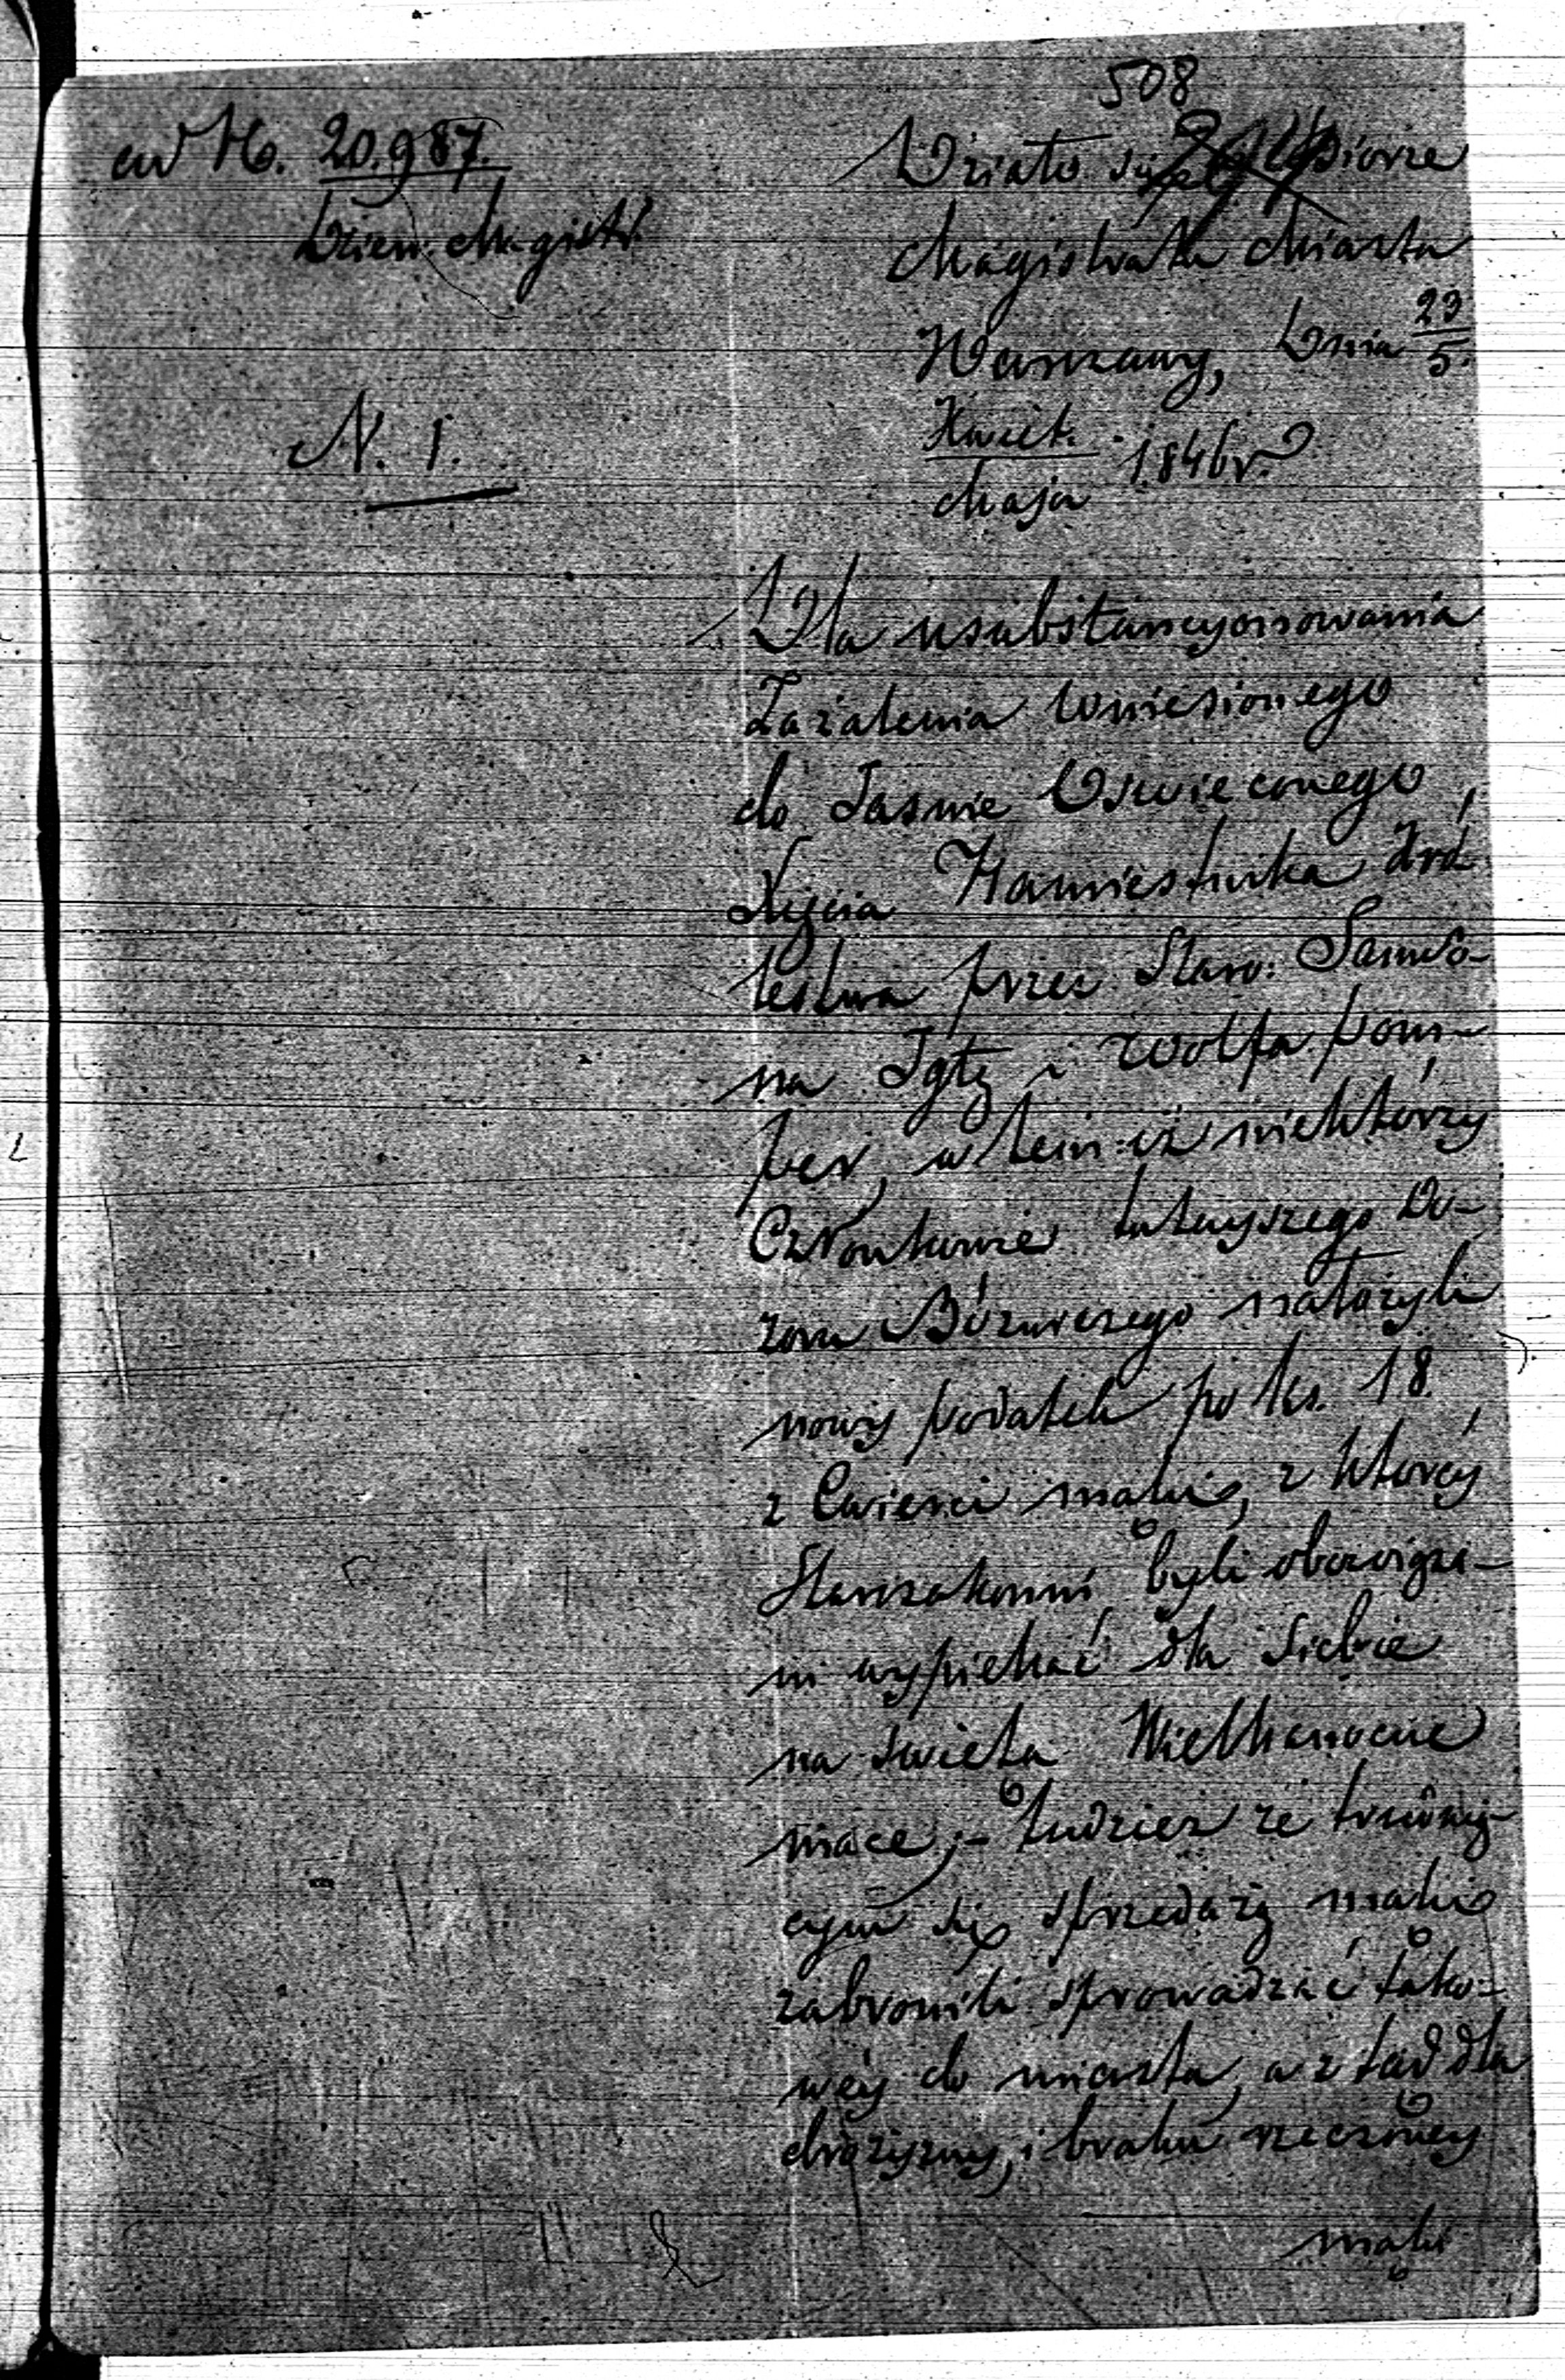 508
ad No. 20.987.
Dzien: Magistr.
N. 1.
Działo się w Biorze
Magistratu Miasta
Warszawy, Dnia 23/5.
Kwiet./Maja 1846 r.
Dla usubstancyonowania
Zażalenia wniesionego
do Jasnie Oswieconego
Xięcia Namiestnika Kró
lestwa przez Staro: Samso-
na Igłę i Wolfa pom-
per, w tem iż niektórzy
Członkowie tuteyszego Do-
zoru Bóżniczego nałożyli
nowy podatek po ks. 18.
z Cwierci mąki, z któréy
Starozakonni byli obowiąza-
ni wypiekać dla siebie
na święta Wielkanocne
mace; - tudzież że trudnią-
cym się sprzedażą mąki
zabronili sprowadzać tako-
wéy do miasta, a z tąd dla
drożyzny, i braku rzeczonéy
mąki